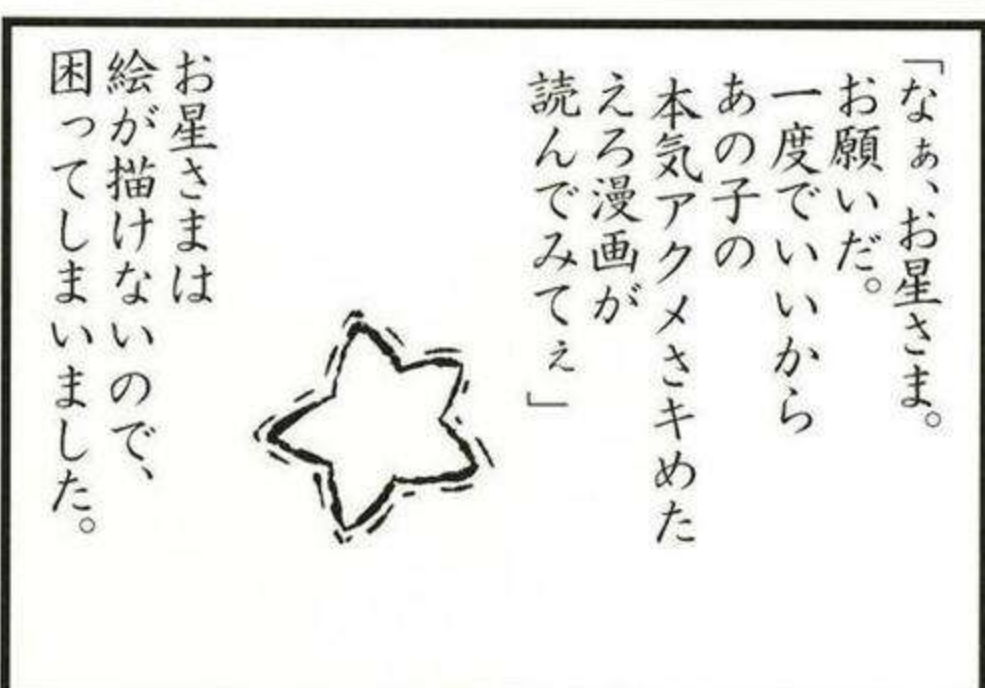 「なぁ、お星さま。
お願いだ。
一度でいいから
あの子の
本気アクメさキめた
えろ漫画が
読んでみてぇ」
お星さまは
絵が描けないので、
困ってしまいました。